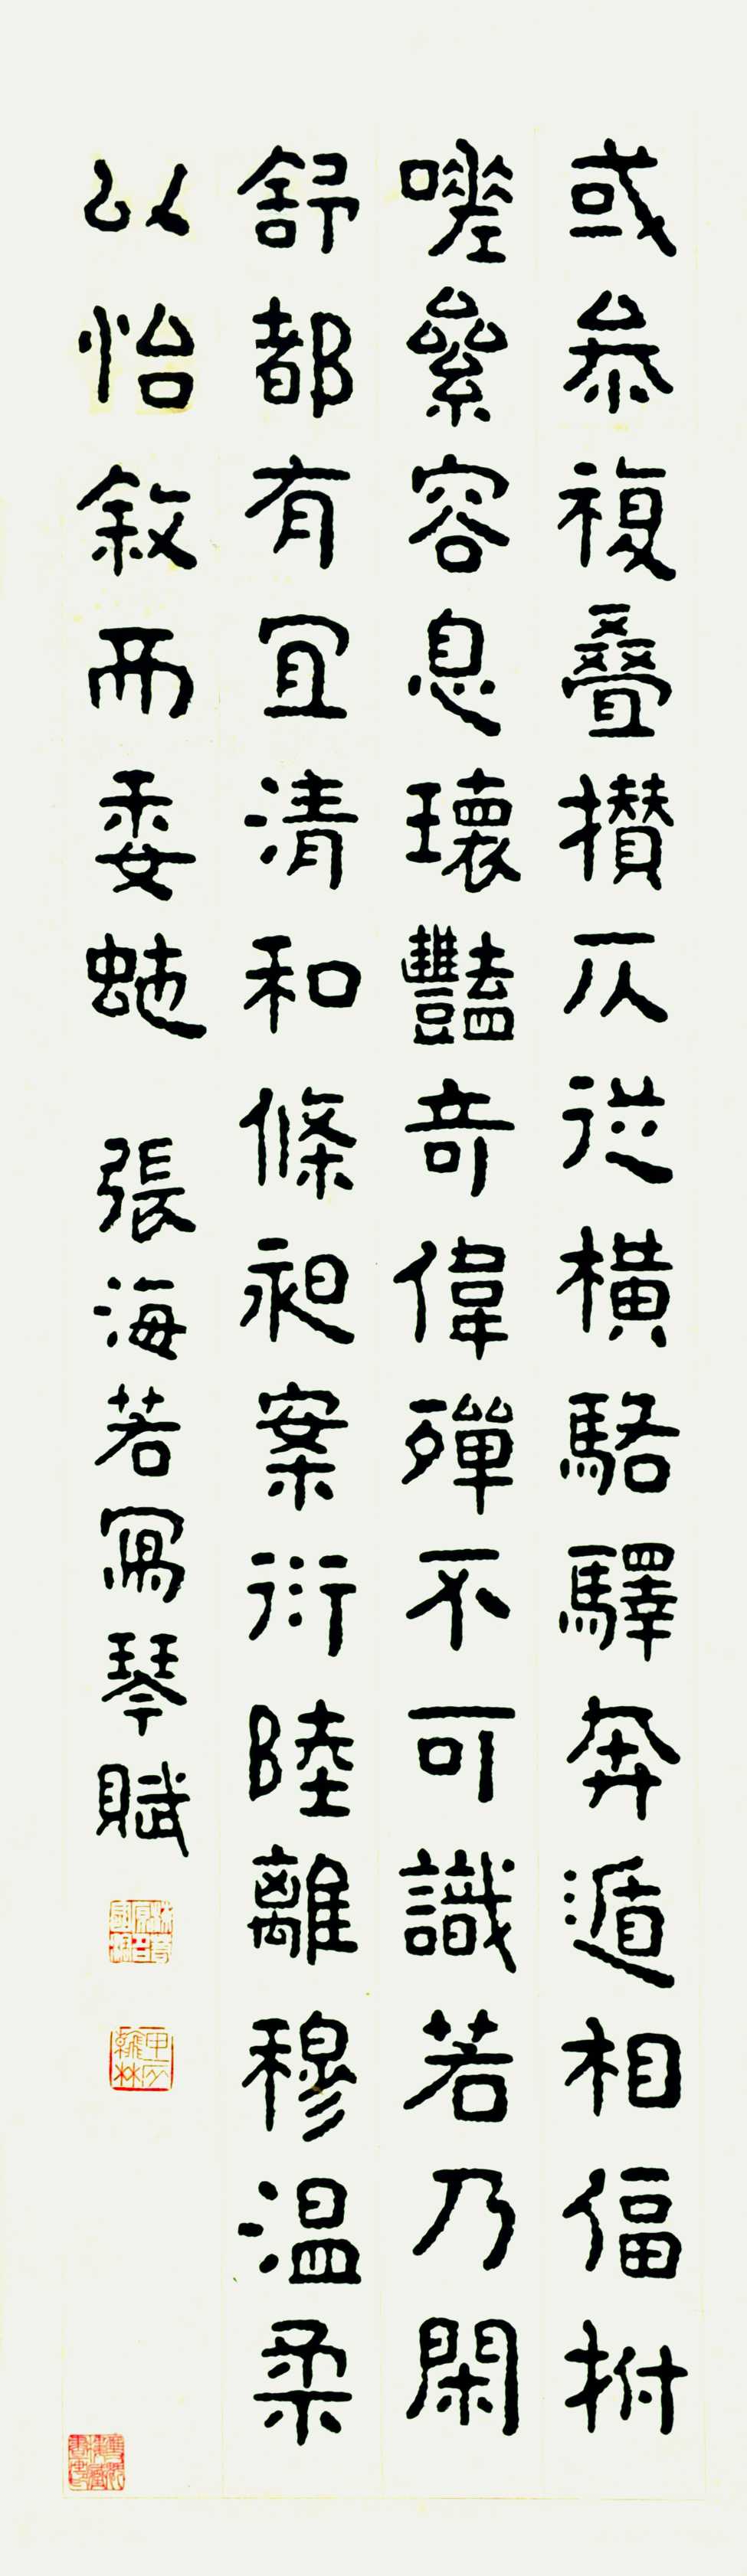 或參複疊攢仄從橫駱驛奔遁相偪拊
嗟纍容息瓌豔奇偉殫不可識若乃閑
舒都有宜清和條昶案衍陸離穆温柔
以怡敘而委蛇 張海若寫琴賦